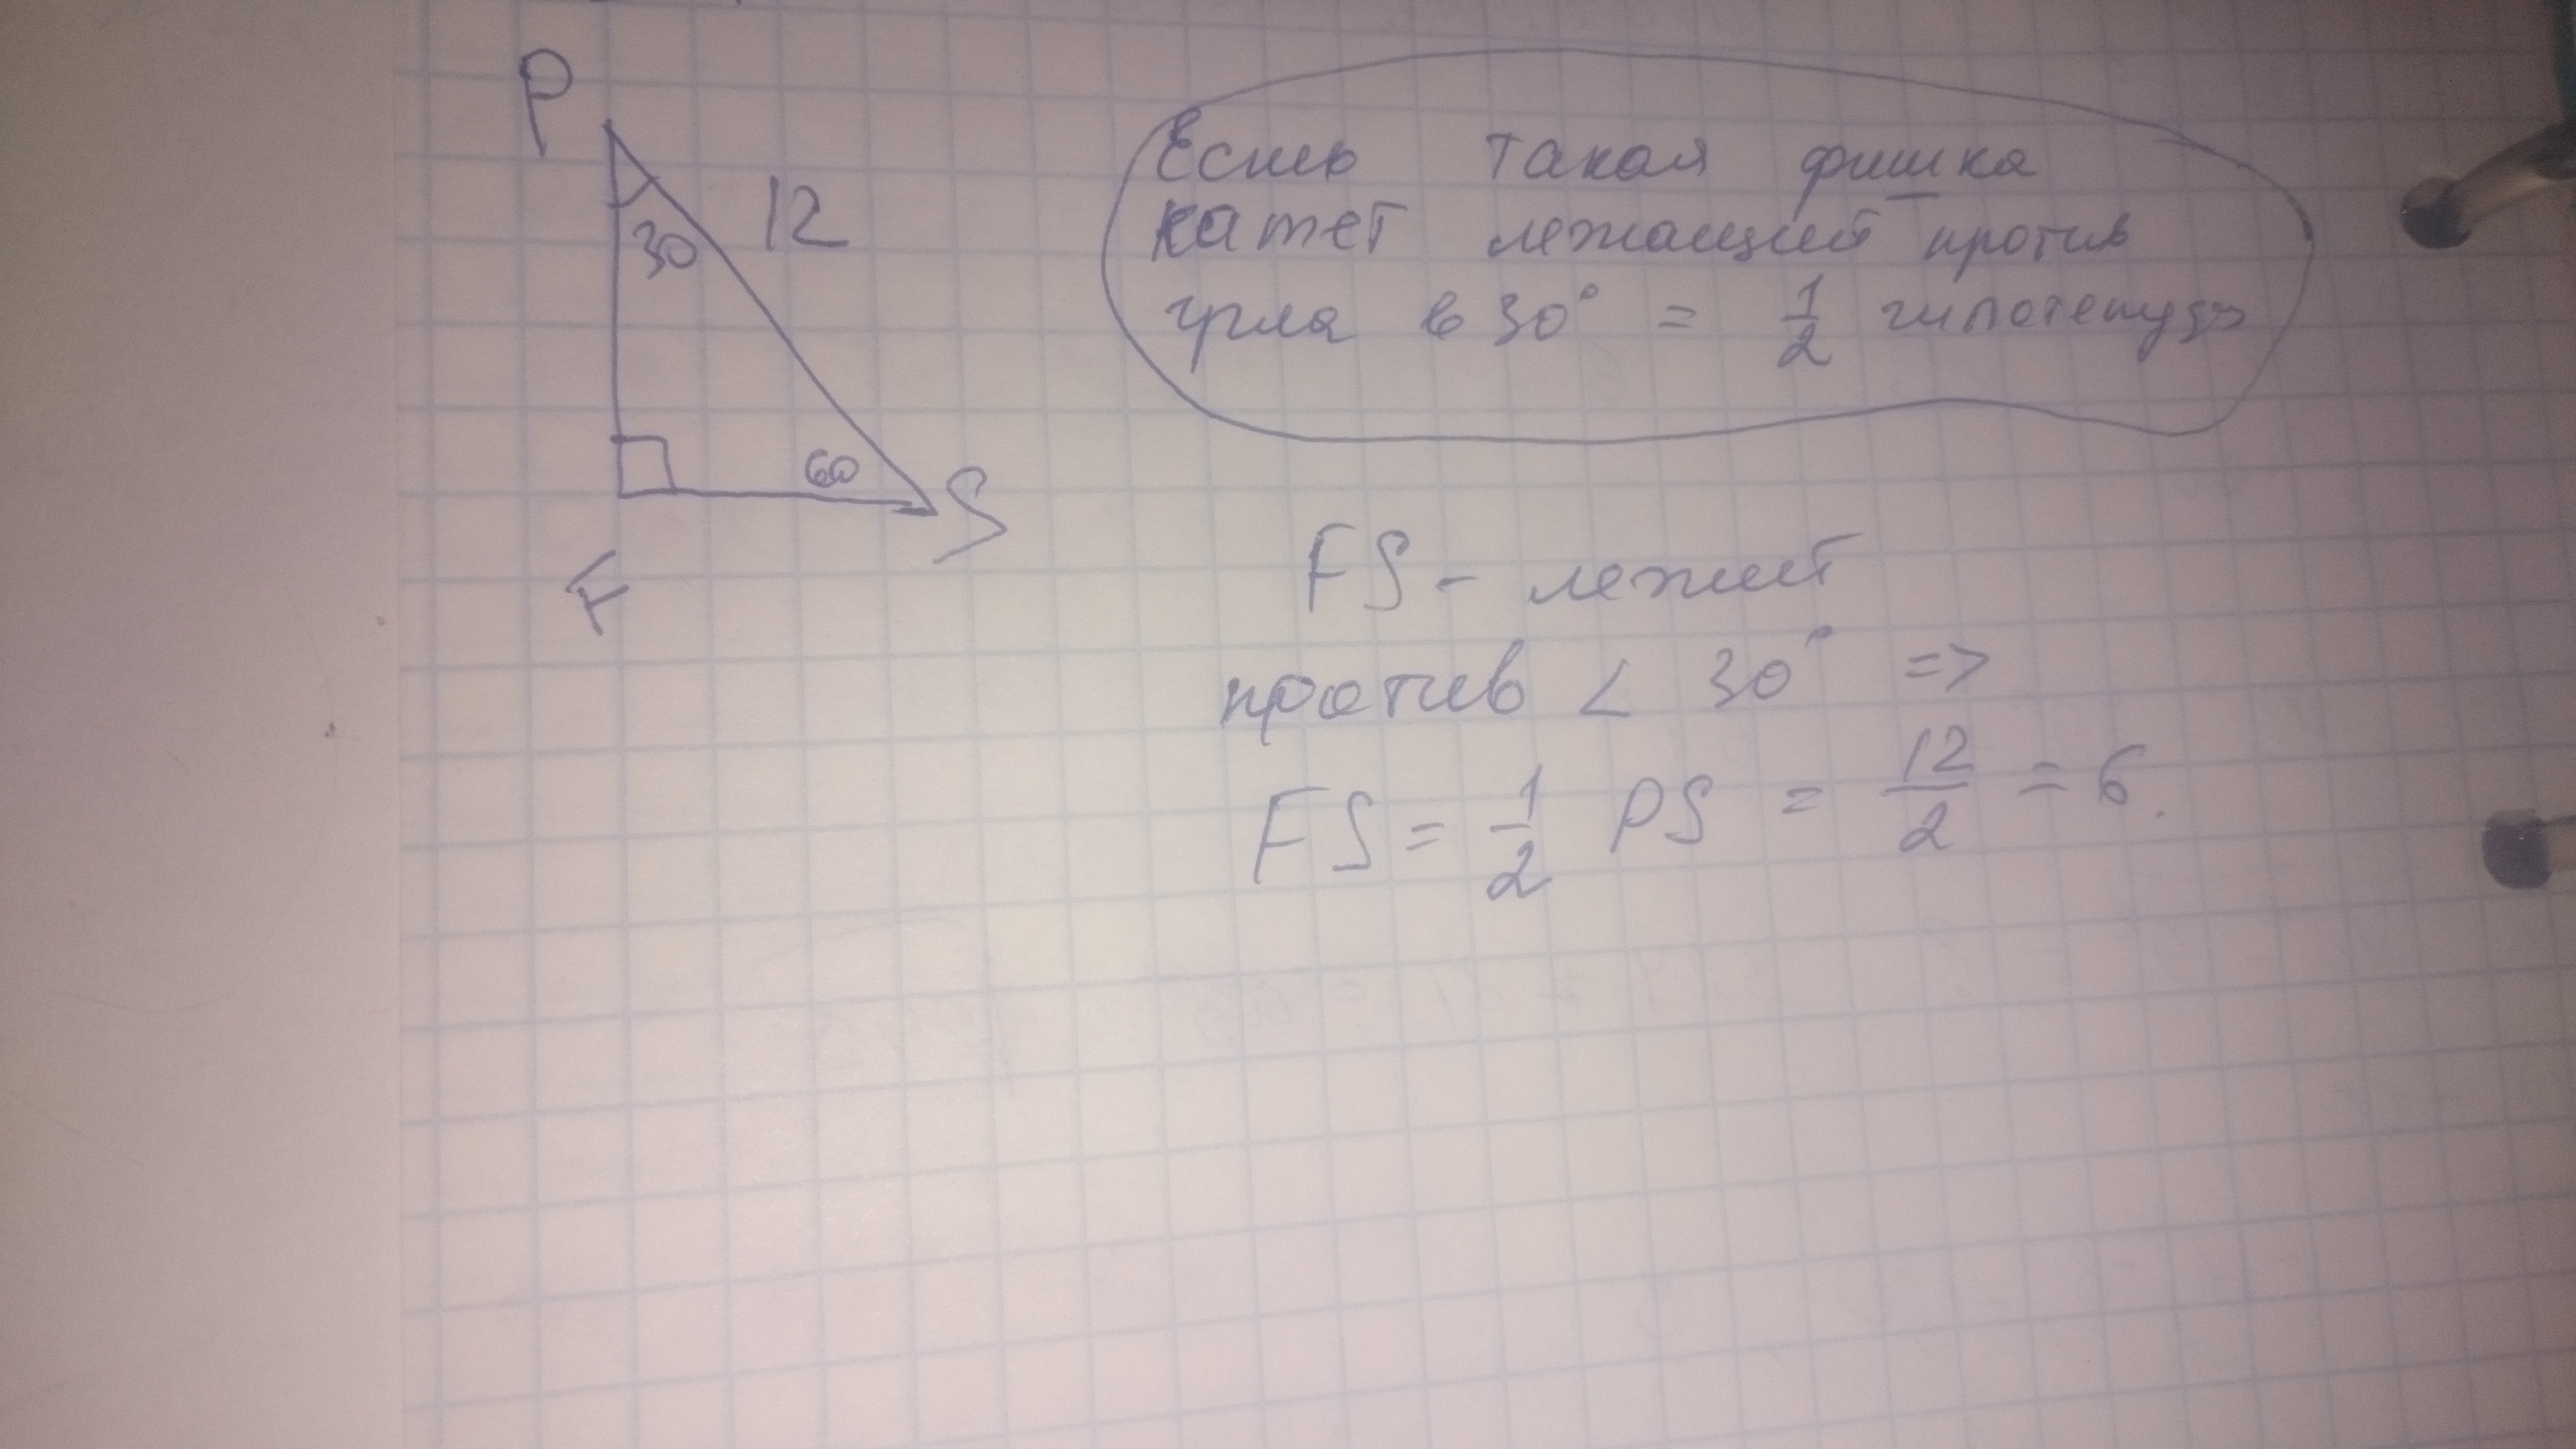 P
12
30
60
S
F
Есть такая фишка
катет лежащий против
угла в 30° = 1/2 гипотенузы
FS - лежит
против < 30° =>
FS = 1/2 PS = 12/2 = 6.